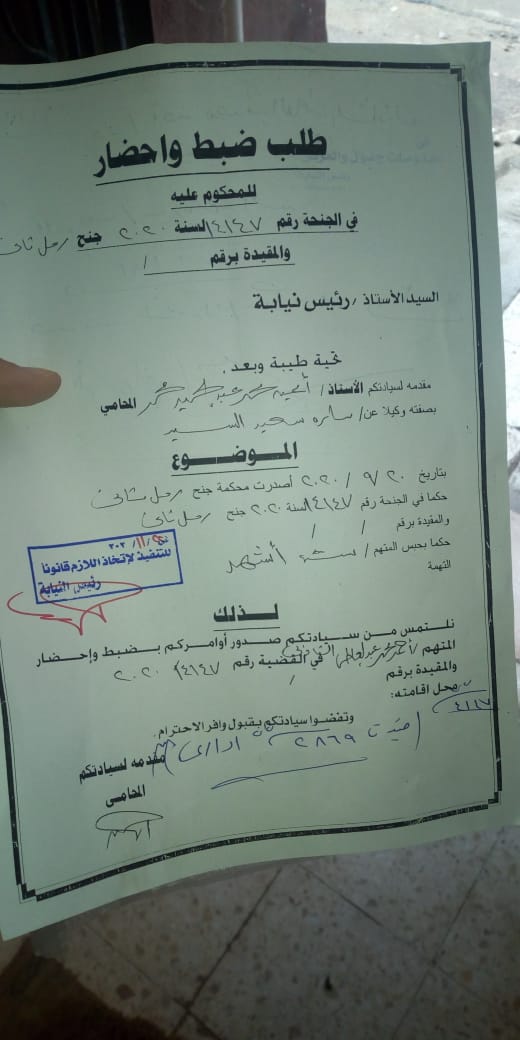 طلب ضبط واحضار
للمحكوم عليه
في الجنحة رقم ١٤١٤٧ لسنة ٢٠٢٠ جنح رمل ثان
والمقيدة برقم /
السيد الأستاذ / رئيس نيابة
تحية طيبة وبعد ،
مقدمه لسيادتكم الأستاذ / محمد عبد الحميد المحامي
بصفته وكيلا عن / ساره سعيد السيد
الموضوع
بتاريخ ٢٠ / ٩ / ٢٠٢٠ أصدرت محكمة جنح رمل ثان
حكما في الجنحة رقم ١٤١٤٧ لسنة ٢٠٢٠ جنح رمل ثان
والمقيدة برقم / /
حكما بحبس المتهم / ستة أشهر
التهمة
للتنفيذ لإتخاذ اللازم قانونا
رئيس النيابة
لذلك
نلتمس من سيادتكم صدور أوامركم بضبط وإحضار
المتهم / أحمد محمد عبدالعاطي في القضية رقم ١٤١٤٧ ٢٠٢٠
والمقيدة برقم /
محل اقامته:
وتفضوا سيادتكم بقبول وافر الاحترام.
٢٨٦٩ اداري
مقدمه لسيادتكم
المحامى